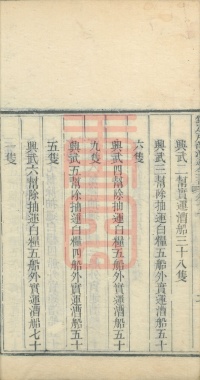 興武二幫實運漕船三十八隻
興武三幫除抽運白糧五船外實運漕船五十
六隻
興武四幫除抽運白糧五船外實運漕船五十
九隻
興武五幫除抽運白糧四船外實運漕船五十
五隻
興武六幫除抽運白糧五船外實運漕船七十
二隻